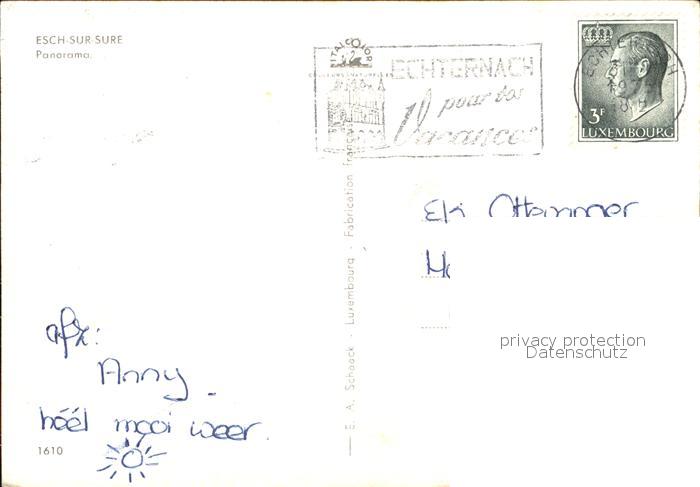 ESCH-SUR-SURE
Panorama.
ITALCOLOR
ECHTERNACH
pour vos
Vacances
3F
LUXEMBOURG
afz:
Anny.
héél mooi weer.
1610
E. A. Schaack - Luxembourg - Fabrication française
privacy protection
Datenschutz